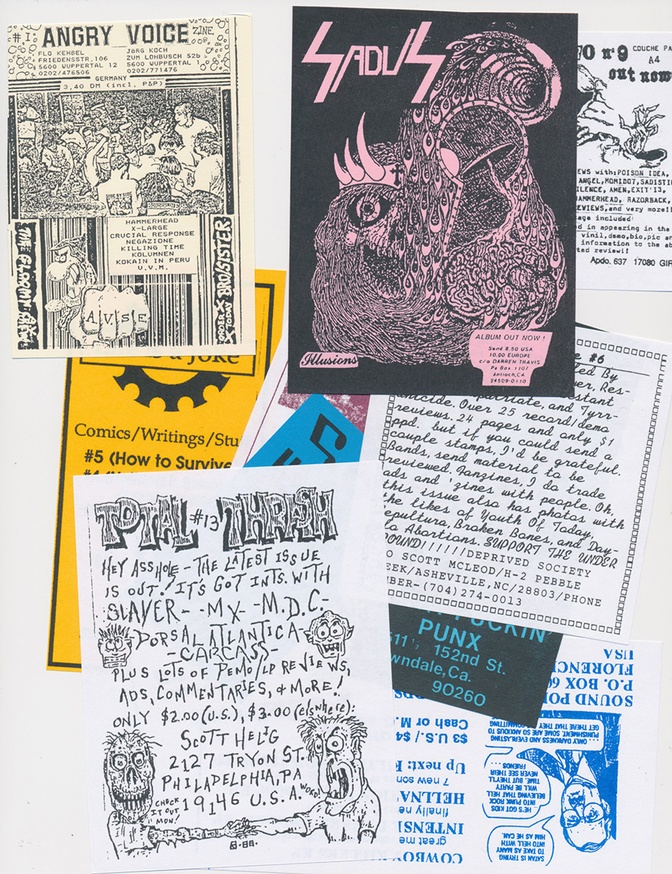 #1 ANGRY VOICE ZINE
FLO KEHBEL
FRIEDENSSTR.106
5600 WUPPERTAL 12
0202/476506
JøRG KOCH
ZUM LOHBUSCH 52b
5600 WUPPERTAL 1
0202/771476
GERMANY
3,40 DM (incl. P&P)
HAMMERHEAD
X-LARGE
CRUCIAL RESPONSE
NEGAZIONE
KILLING TIME
KOLUMNEN
KOKAIN IN PERU
U.V.M.
A.V.S.E
SADUS
ALBUM OUT NOW!
Send 8.50 USA
10.00 EUROPE
c/o DARREN TRAVIS
Po Box 1107
Antioch,CA
94509-0110
Illusions
O nº9
COUCHE PA
A4
out now
EWS with:POISON IDEA,
ANGEL,MOMIDOT,SADISTI
ILENCE, AMEN,EXIT'13,
HAMMERHEAD, RAZORBACK,
EVIEWS,and very more!
age included
d in appearing in the
vinil,demo,bio,pic an
information to the ab
ted review!!
Apdo. 637 17080 GIR
a Joke
Comics/Writings/Stu
#5 (How to Survive
e #6
ted By
ver, Res-
nstant
icide. Over 25 record/demo
reviews. 24 pages and only $1
ppd. but if you could send a
couple stamps, I'd be grateful.
Bands, send material to be
reviewed. Fanzines, I do trade
ads and 'zines with people. Oh,
this issue also has photos with
the likes of Youth Of Today,
epultura, Broken Bones, and Day-
lo Abortions. SUPPORT THE UNDER
OUND!//////DEPRIVED SOCIETY
O SCOTT MCLEOD/H-2 PEBBLE
EEK/ASHEVILLE,NC/28803/PHONE
MBER-(704)274-0013
TOTAL #13 THRASH
HEY ASSHOLE - THE LATEST ISSUE
IS OUT! IT'S GOT INTS. WITH
SLAYER - - MX - - M.D.C. -
DORSAL ATLANTICA -
- CARCASS -
PLUS LOTS OF DEMO/LP REVIEWS,
ADS, COMMENTARIES, & MORE!
ONLY $2.00 (U.S.), $3.00 (elswhere):
SCOTT HELIG
2127 TRYON ST.
PHILADELPHIA, PA
19146 U.S.A.
CHECK
IT OUT
MON!
WORD!
8-88-
FUCKIN'
PUNX
11½ 152nd St.
wndale,Ca.
90260
SOUND PO
P.O. BOX 60
FLORENC
USA
Cash or M.
$3 U.S./ $4
Up next:
7 new son
HELLNA
finally me
INTENS
great me
COWBOY
ONLY DARKNESS AND EVERLASTING
PUNISHMENT... SOME ARE SO ANXIOUS TO
GET THERE THAT THEY'RE COMMITTING
HE'S GOT KIDS
INTO PUNK ROCK
BELIEVING THAT HELL
WILL BE PARTY
TIME, BUT THEY'LL
NEVER SEE THEIR
FRIENDS
SATAN IS TRYING
TO TAKE AS MANY
INTO HELL WITH
HIM AS HE CAN.